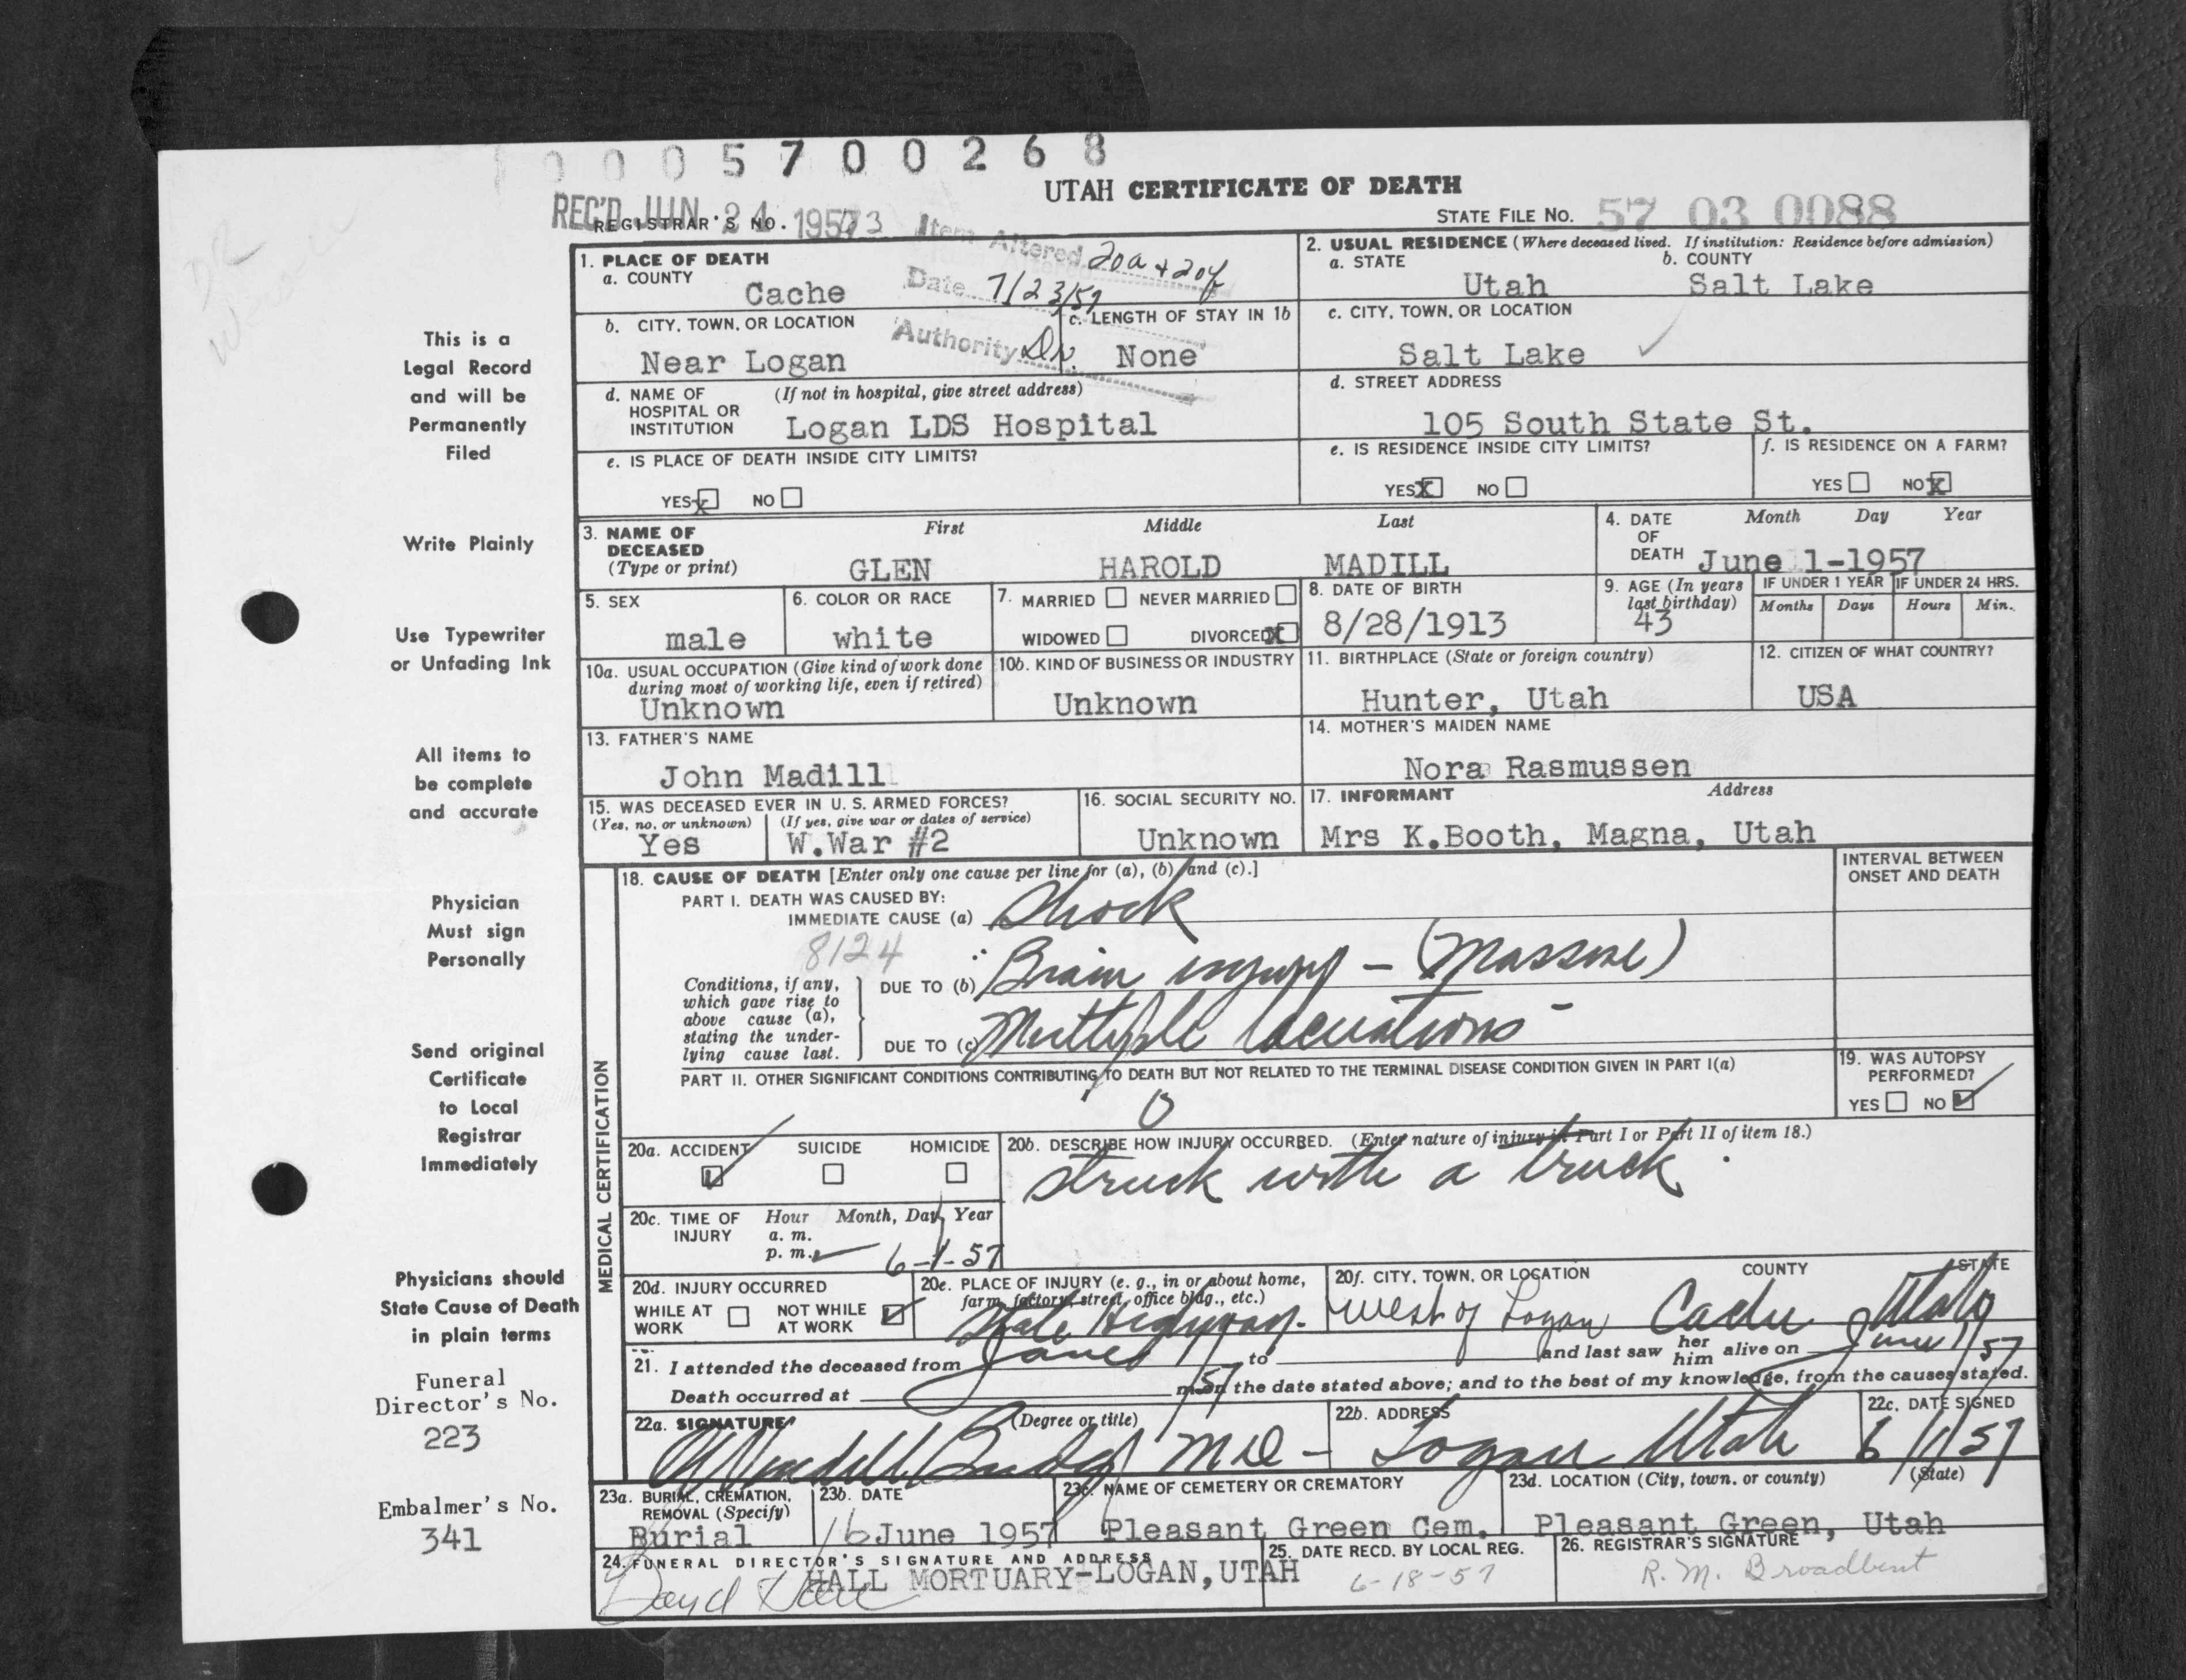 0 0 0 5 7 0 0 2 6 8
UTAH CERTIFICATE OF DEATH
REC'D JUN 24 1957
REGISTRAR'S NO. 73
STATE FILE NO. 57 03 0088
Item Altered 20a + 20f
Date 7/23/57
Authority Dr.
This is a
Legal Record
and will be
Permanently
Filed
Write Plainly
Use Typewriter
or Unfading Ink
All items to
be complete
and accurate
Physician
Must sign
Personally
Send original
Certificate
to Local
Registrar
Immediately
Physicians should
State Cause of Death
in plain terms
Funeral
Director's No.
223
Embalmer's No.
341
1. PLACE OF DEATH
a. COUNTY
Cache
b. CITY, TOWN, OR LOCATION
Near Logan
c. LENGTH OF STAY IN 1b
None
d. NAME OF HOSPITAL OR INSTITUTION (If not in hospital, give street address)
Logan LDS Hospital
e. IS PLACE OF DEATH INSIDE CITY LIMITS?
YES x NO
2. USUAL RESIDENCE (Where deceased lived. If institution: Residence before admission)
a. STATE b. COUNTY
Utah Salt Lake
c. CITY, TOWN, OR LOCATION
Salt Lake
d. STREET ADDRESS
105 South State St.
e. IS RESIDENCE INSIDE CITY LIMITS?
YES X NO
f. IS RESIDENCE ON A FARM?
YES NO X
3. NAME OF DECEASED (Type or print)
First Middle Last
GLEN HAROLD MADILL
4. DATE OF DEATH Month Day Year
June 1-1957
5. SEX
male
6. COLOR OR RACE
white
7. MARRIED NEVER MARRIED
WIDOWED DIVORCED X
8. DATE OF BIRTH
8/28/1913
9. AGE (In years last birthday)
43
IF UNDER 1 YEAR IF UNDER 24 HRS.
Months Days Hours Min.
10a. USUAL OCCUPATION (Give kind of work done during most of working life, even if retired)
Unknown
10b. KIND OF BUSINESS OR INDUSTRY
Unknown
11. BIRTHPLACE (State or foreign country)
Hunter, Utah
12. CITIZEN OF WHAT COUNTRY?
USA
13. FATHER'S NAME
John Madill
14. MOTHER'S MAIDEN NAME
Nora Rasmussen
15. WAS DECEASED EVER IN U. S. ARMED FORCES?
(Yes, no, or unknown) (If yes, give war or dates of service)
Yes W.War #2
16. SOCIAL SECURITY NO.
Unknown
17. INFORMANT Address
Mrs K.Booth, Magna, Utah
MEDICAL CERTIFICATION
18. CAUSE OF DEATH [Enter only one cause per line for (a), (b) and (c).]
INTERVAL BETWEEN ONSET AND DEATH
PART I. DEATH WAS CAUSED BY:
IMMEDIATE CAUSE (a) Shock
8124
Conditions, if any, which gave rise to above cause (a), stating the underlying cause last.
DUE TO (b) Brain injury - (Massive)
DUE TO (c) Multiple lacerations -
PART II. OTHER SIGNIFICANT CONDITIONS CONTRIBUTING TO DEATH BUT NOT RELATED TO THE TERMINAL DISEASE CONDITION GIVEN IN PART I(a)
0
19. WAS AUTOPSY PERFORMED?
YES NO ✓
20a. ACCIDENT ✓ SUICIDE HOMICIDE
20b. DESCRIBE HOW INJURY OCCURRED. (Enter nature of injury in Part I or Part II of item 18.)
struck with a truck.
20c. TIME OF INJURY Hour Month, Day, Year
a. m.
p. m. ✓ 6-1-57
20d. INJURY OCCURRED
WHILE AT WORK NOT WHILE AT WORK ✓
20e. PLACE OF INJURY (e. g., in or about home, farm, factory, street, office bldg., etc.)
State Highway.
20f. CITY, TOWN, OR LOCATION COUNTY STATE
West of Logan Cache Utah
21. I attended the deceased from June 1 57 to and last saw her him alive on June 1/57
Death occurred at m. on the date stated above; and to the best of my knowledge, from the causes stated.
22a. SIGNATURE (Degree or title)
Wendell Budge MD -
22b. ADDRESS
Logan Utah
22c. DATE SIGNED
6/1/57
23a. BURIAL, CREMATION, REMOVAL (Specify)
Burial
23b. DATE
June 1957
23c. NAME OF CEMETERY OR CREMATORY
Pleasant Green Cem.
23d. LOCATION (City, town, or county) (State)
Pleasant Green, Utah
24. FUNERAL DIRECTOR'S SIGNATURE AND ADDRESS
HALL MORTUARY-LOGAN, UTAH
25. DATE RECD. BY LOCAL REG.
6-18-57
26. REGISTRAR'S SIGNATURE
R. M. Broadbent